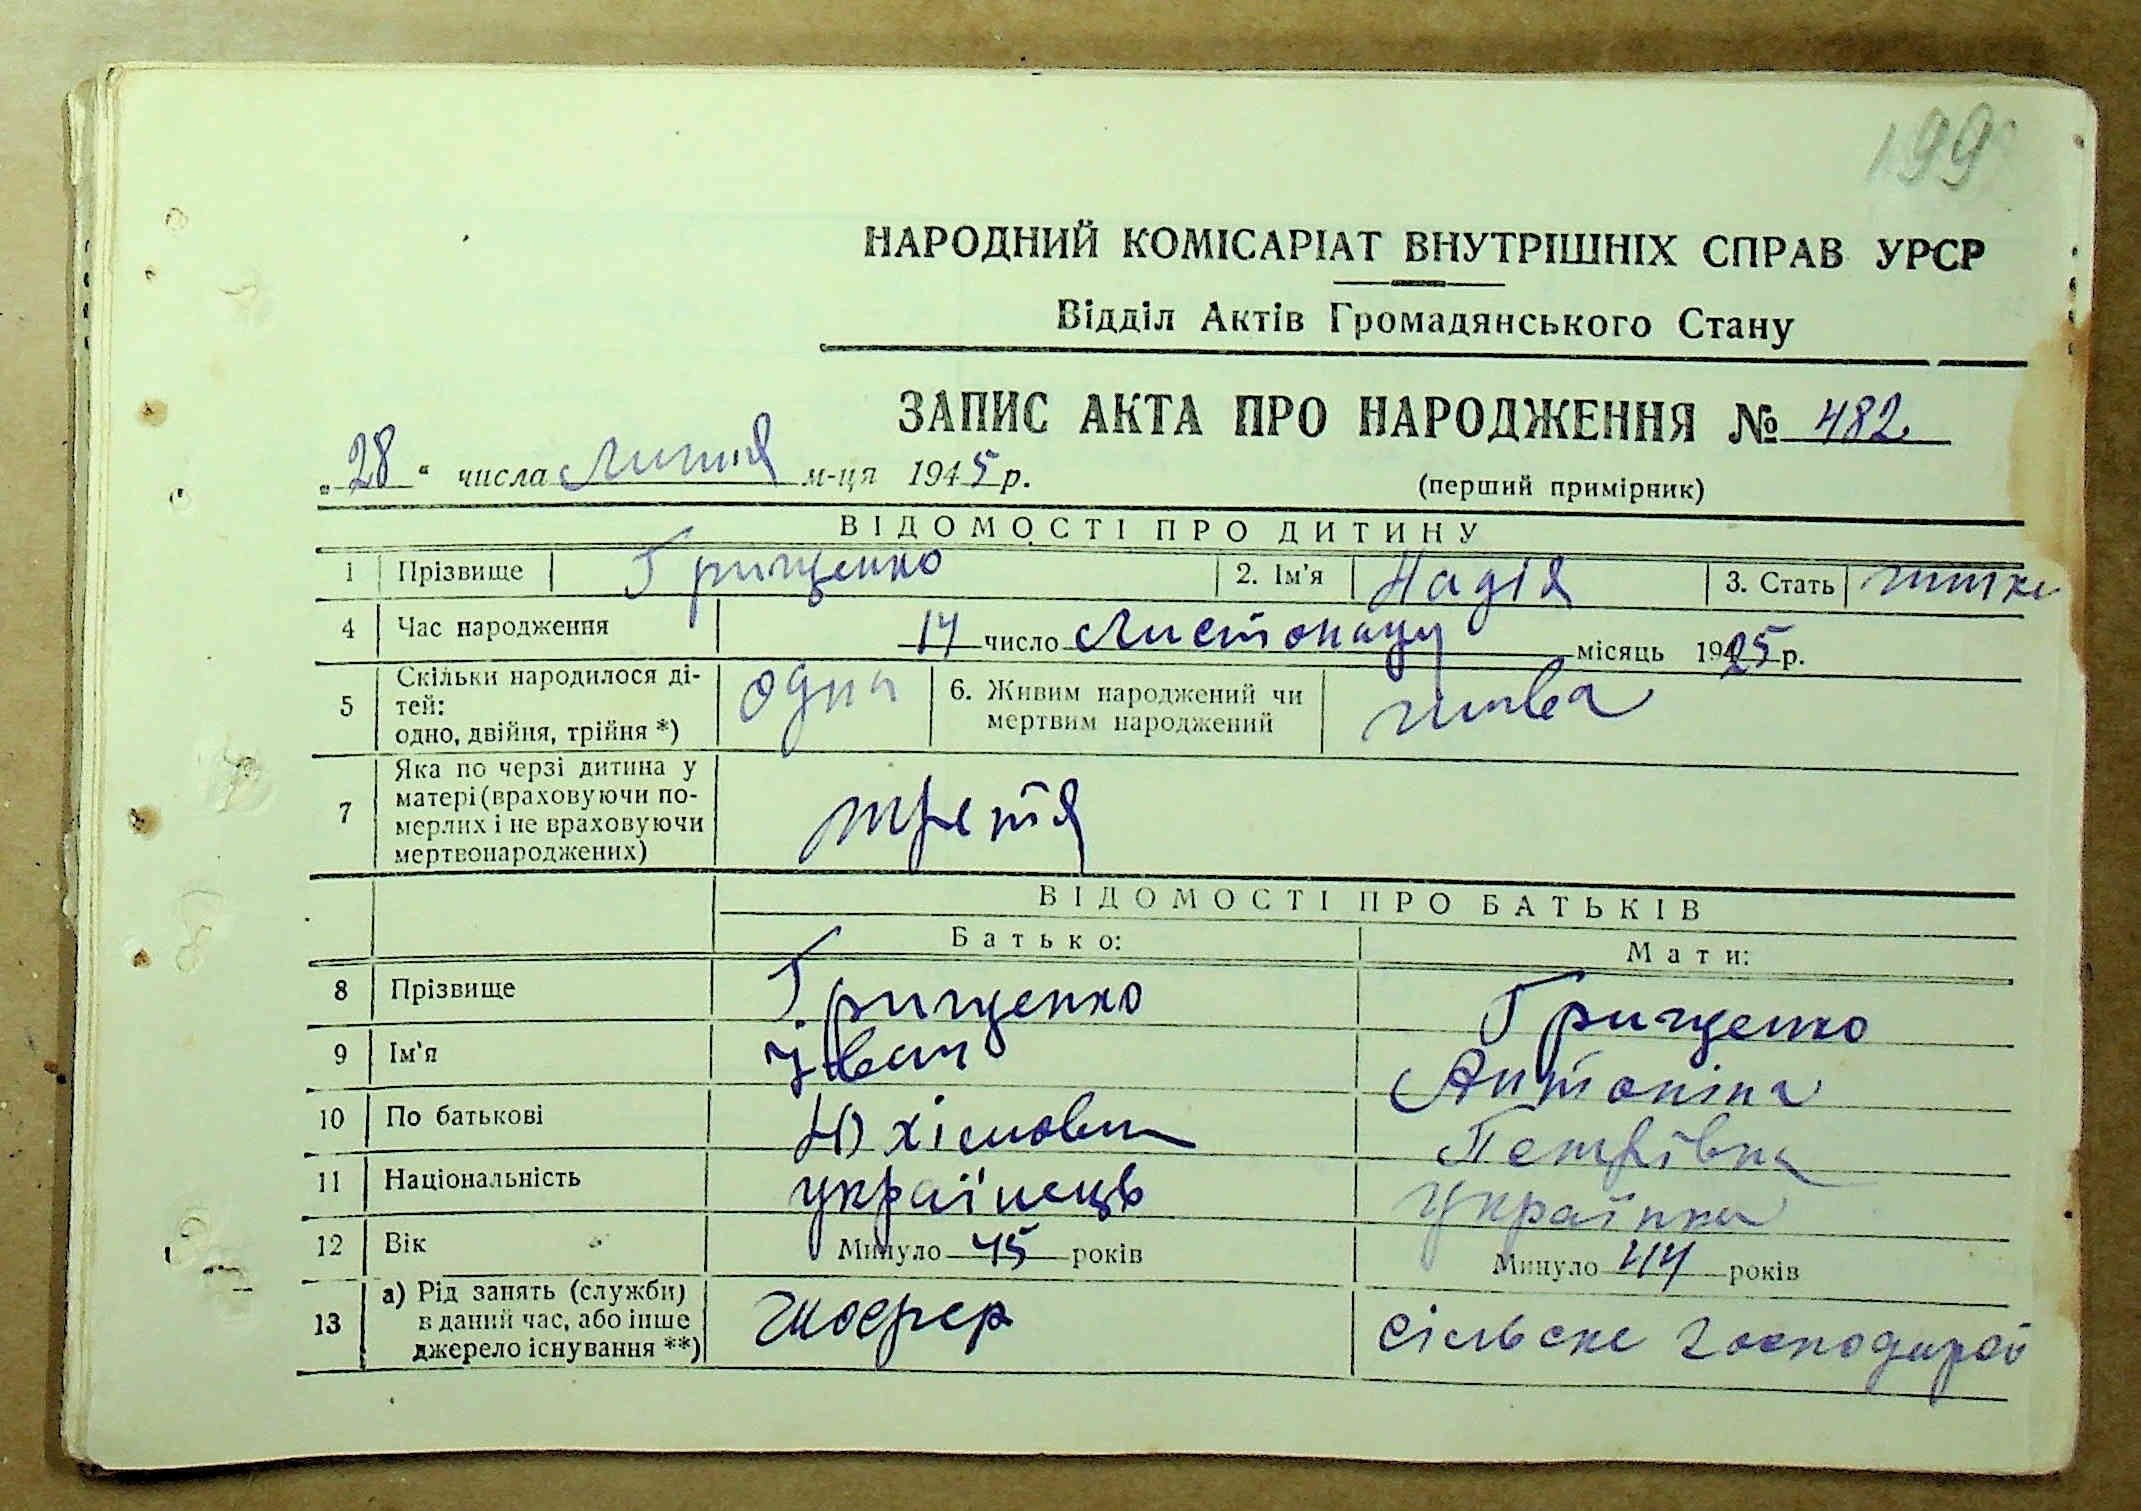 199
НАРОДНИЙ КОМІСАРІАТ ВНУТРІШНІХ СПРАВ УРСР
Відділ Актів Громадянського Стану
ЗАПИС АКТА ПРО НАРОДЖЕННЯ № 482
„ 28 “ числа Липня м-ця 1945 р.
(перший примірник)
ВІДОМОСТІ ПРО ДИТИНУ
1 Прізвище Грищенко 2. Ім'я Надія 3. Стать
4 Час народження 14 число Листопаду місяць 1925 р.
5 Скільки народилося ді-
тей:
одно, двійня, трійня *) одна 6. Живим народжений чи
мертвим народжений жива
7 Яка по черзі дитина у
матері (враховуючи по-
мерлих і не враховуючи
мертвонароджених) третя
ВІДОМОСТІ ПРО БАТЬКІВ
Батько: Мати:
8 Прізвище Грищенко Грищенко
9 Ім'я Іван Антоніна
10 По батькові Юхімович Петрівна
11 Національність українець українка
12 Вік Минуло 45 років Минуло 44 років
13 а) Рід занять (служби)
в даний час, або інше
джерело існування **) шофер сільске господарст